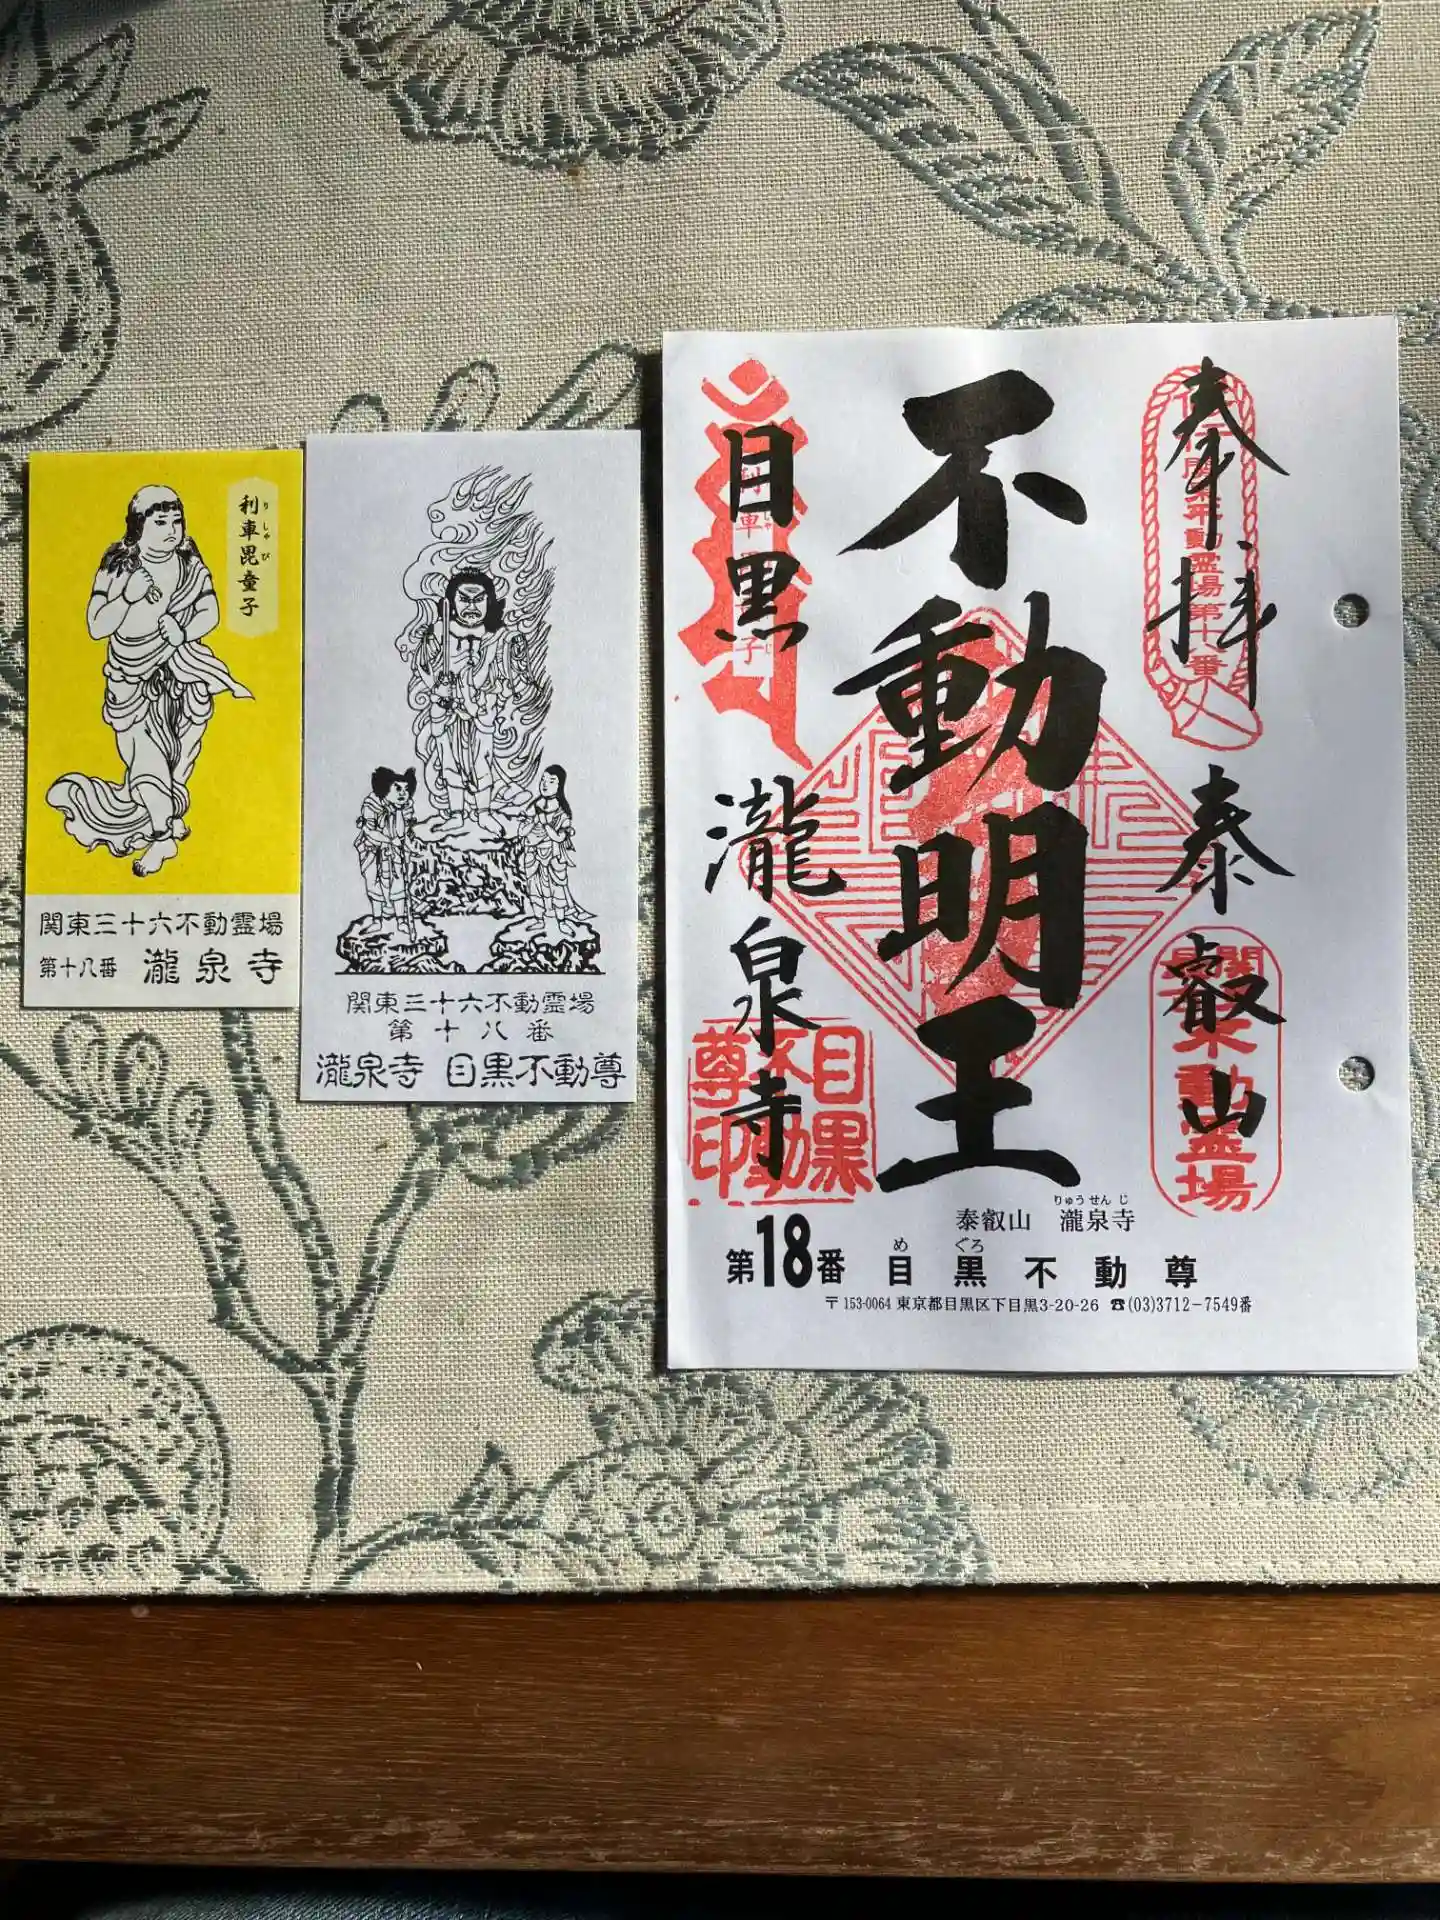 利車毘童子
りしゃび
関東三十六不動霊場
第十八番 瀧泉寺
関東三十六不動霊場
第十八番
瀧泉寺 目黒不動尊
奉拝 泰叡山
不動明王
目黒 瀧泉寺
関東不動霊場第十八番
関東不動霊場
目黒
不動
尊印
りゅうせんじ
泰叡山 瀧泉寺
めぐろ
第18番 目黒不動尊
〒153-0064 東京都目黒区下目黒3-20-26 ☎(03)3712-7549番